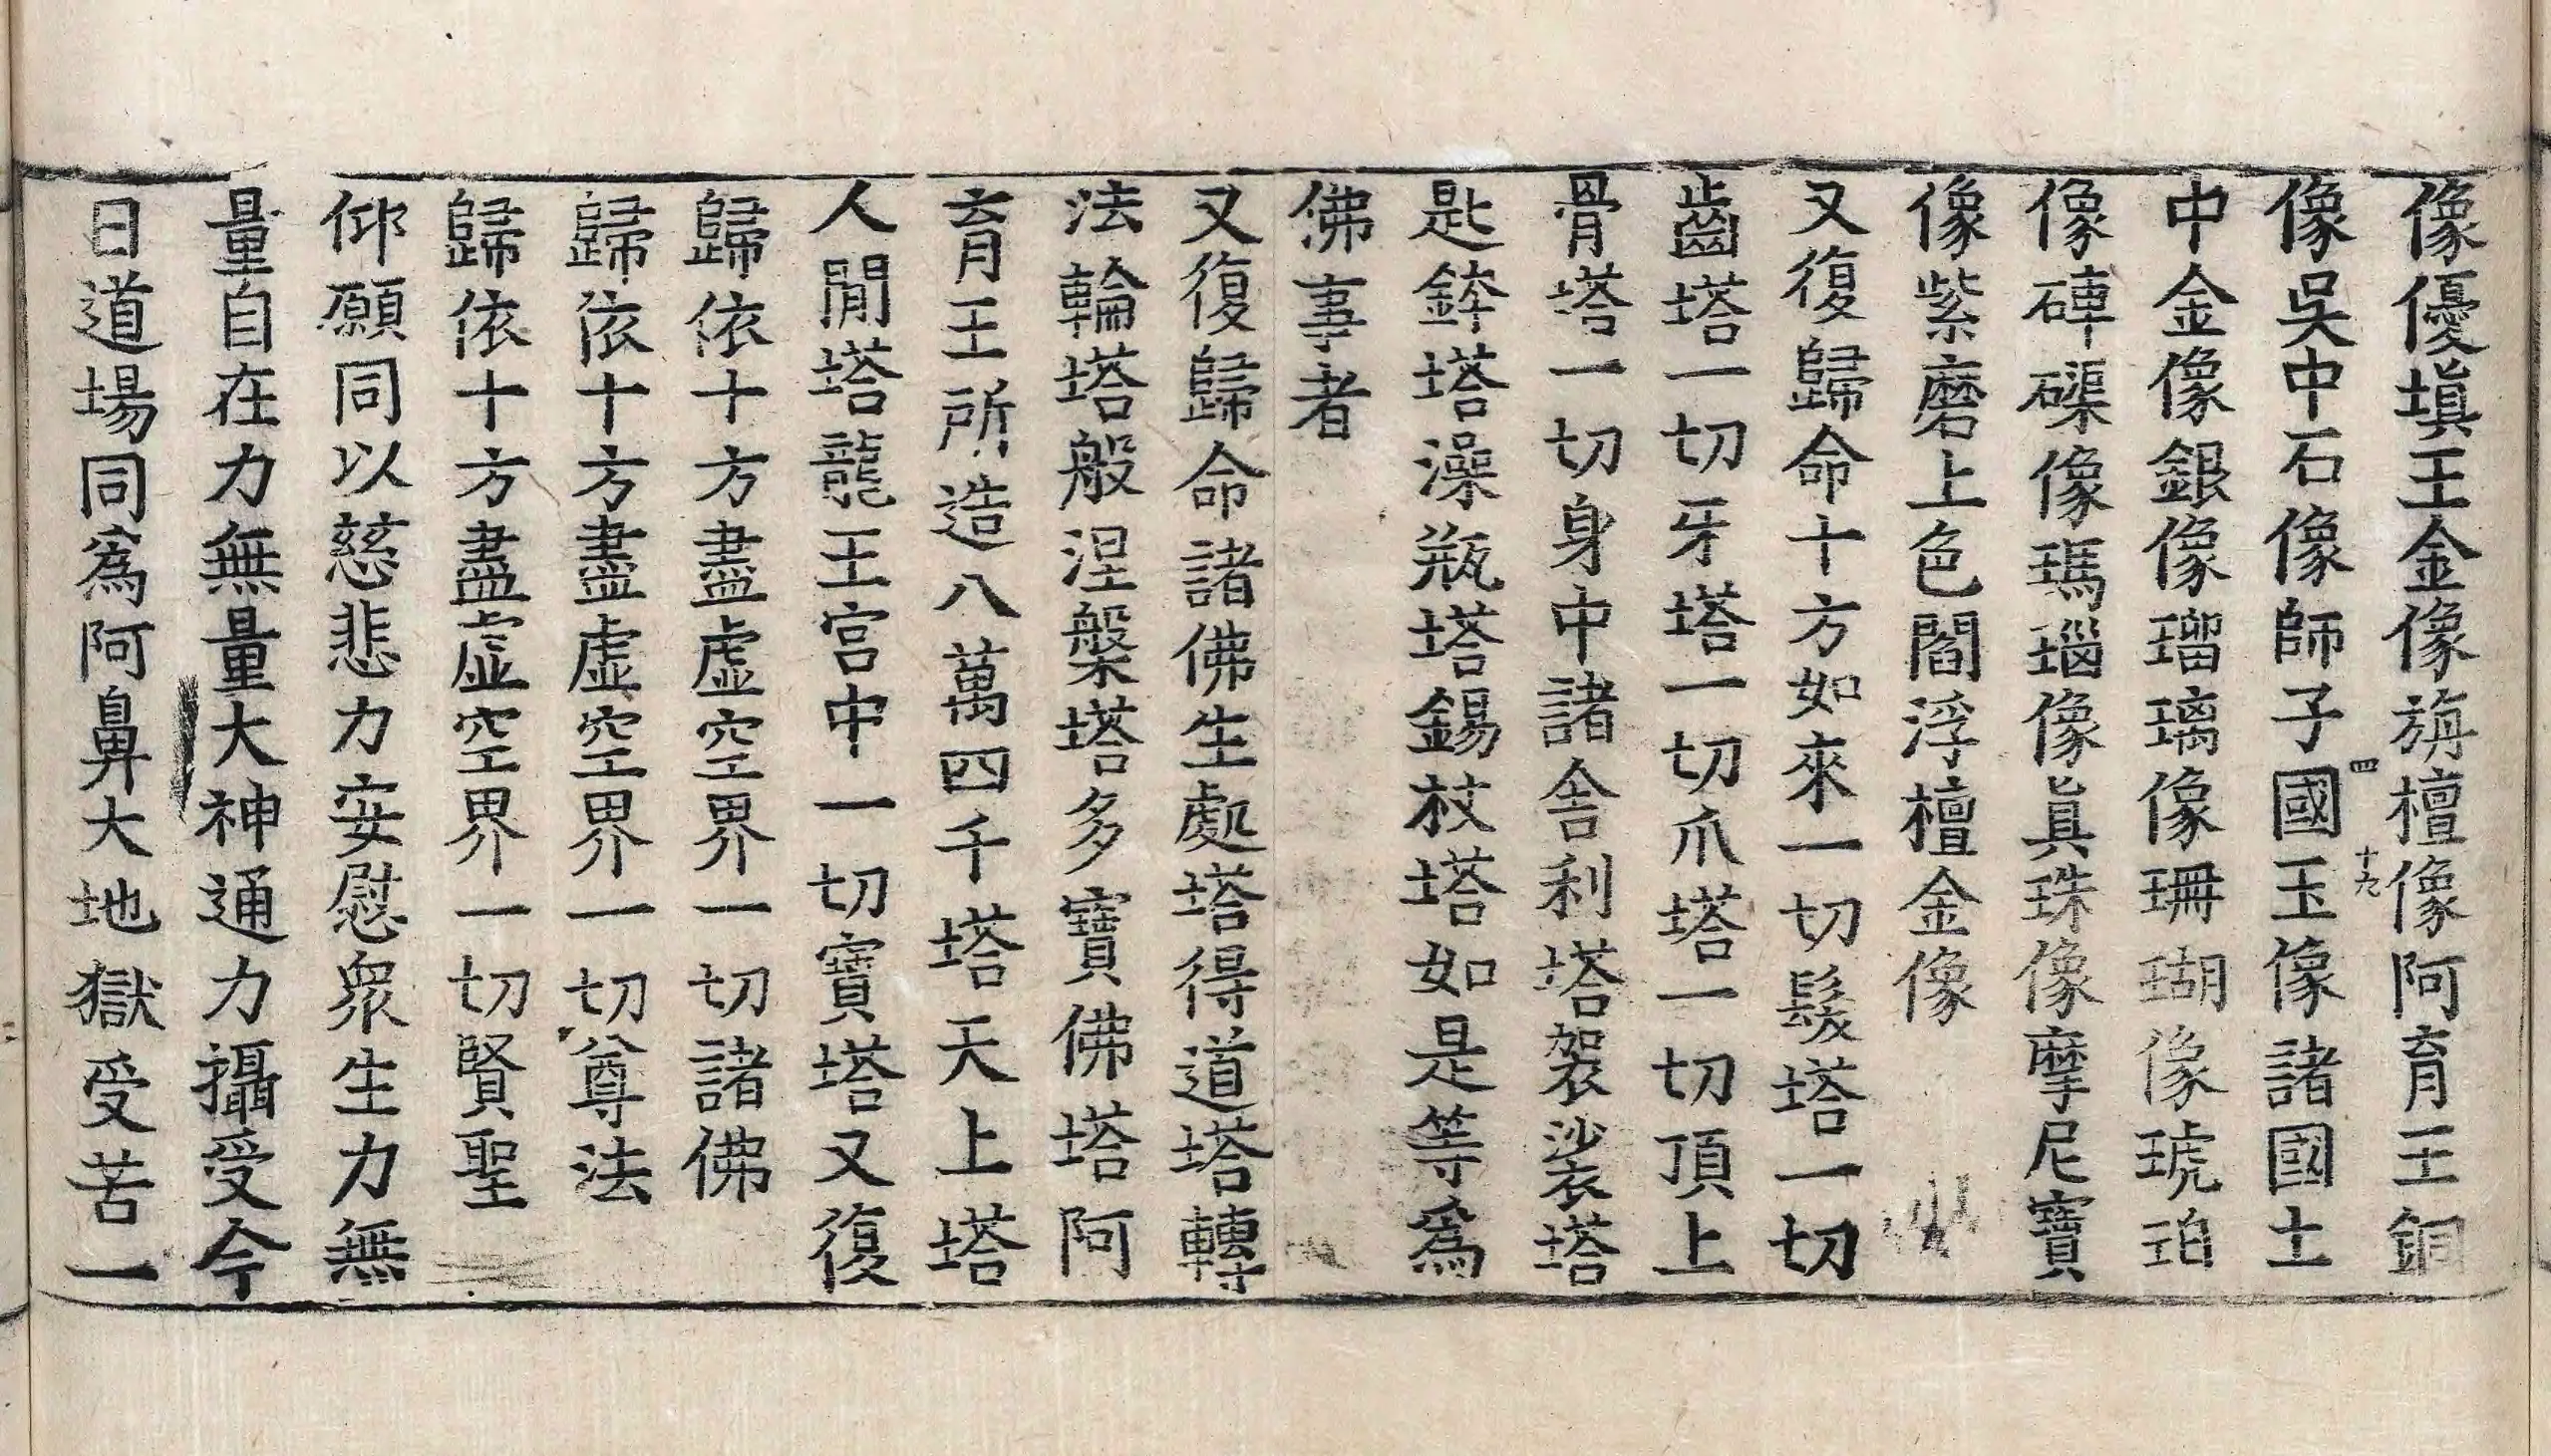 像優塡王金像旃檀像阿育王銅
四 十九
像吳中石像師子國玉像諸國土
中金像銀像瑠璃像珊瑚像琥珀
像硨磲像瑪瑙像眞珠像摩尼寶
像紫磨上色閻浮檀金像
又復歸命十方如來一切髮塔一切
齒塔一切牙塔一切爪塔一切頂上
骨塔一切身中諸舍利塔袈裟塔
匙鉢塔澡瓶塔錫杖塔如是等爲
佛事者
又復歸命諸佛生處塔得道塔轉
法輪塔般涅槃塔多寶佛塔阿
育王所造八萬四千塔天上塔
人閒塔龍王宮中一切寶塔又復
歸依十方盡虛空界一切諸佛
歸依十方盡虛空界一切尊法
歸依十方盡虛空界一切賢聖
仰願同以慈悲力安慰衆生力無
量自在力無量大神通力攝受今
日道場同爲阿鼻大地獄受苦一